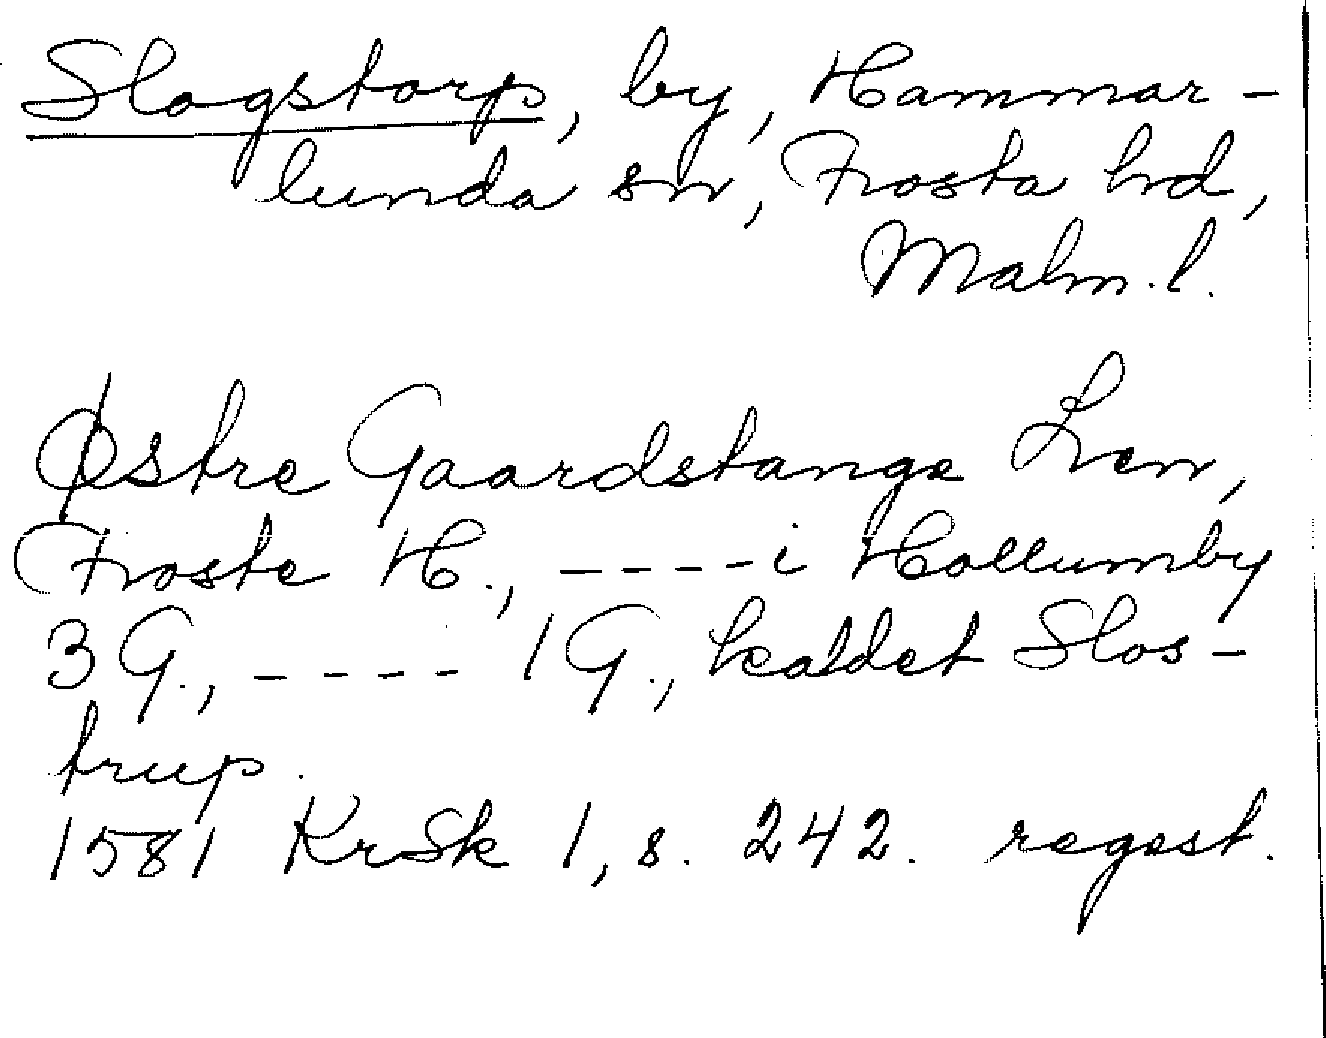 Slogstorp, by, Hammar-
lunda sn, Frosta hd,
Malm. l.
Østre Gaardstange Len,
Froste H., ----i Hollumby
3 G., ---- 1 G., kaldet Slos-
trup.
1581 KrSk 1, s. 242. regest.